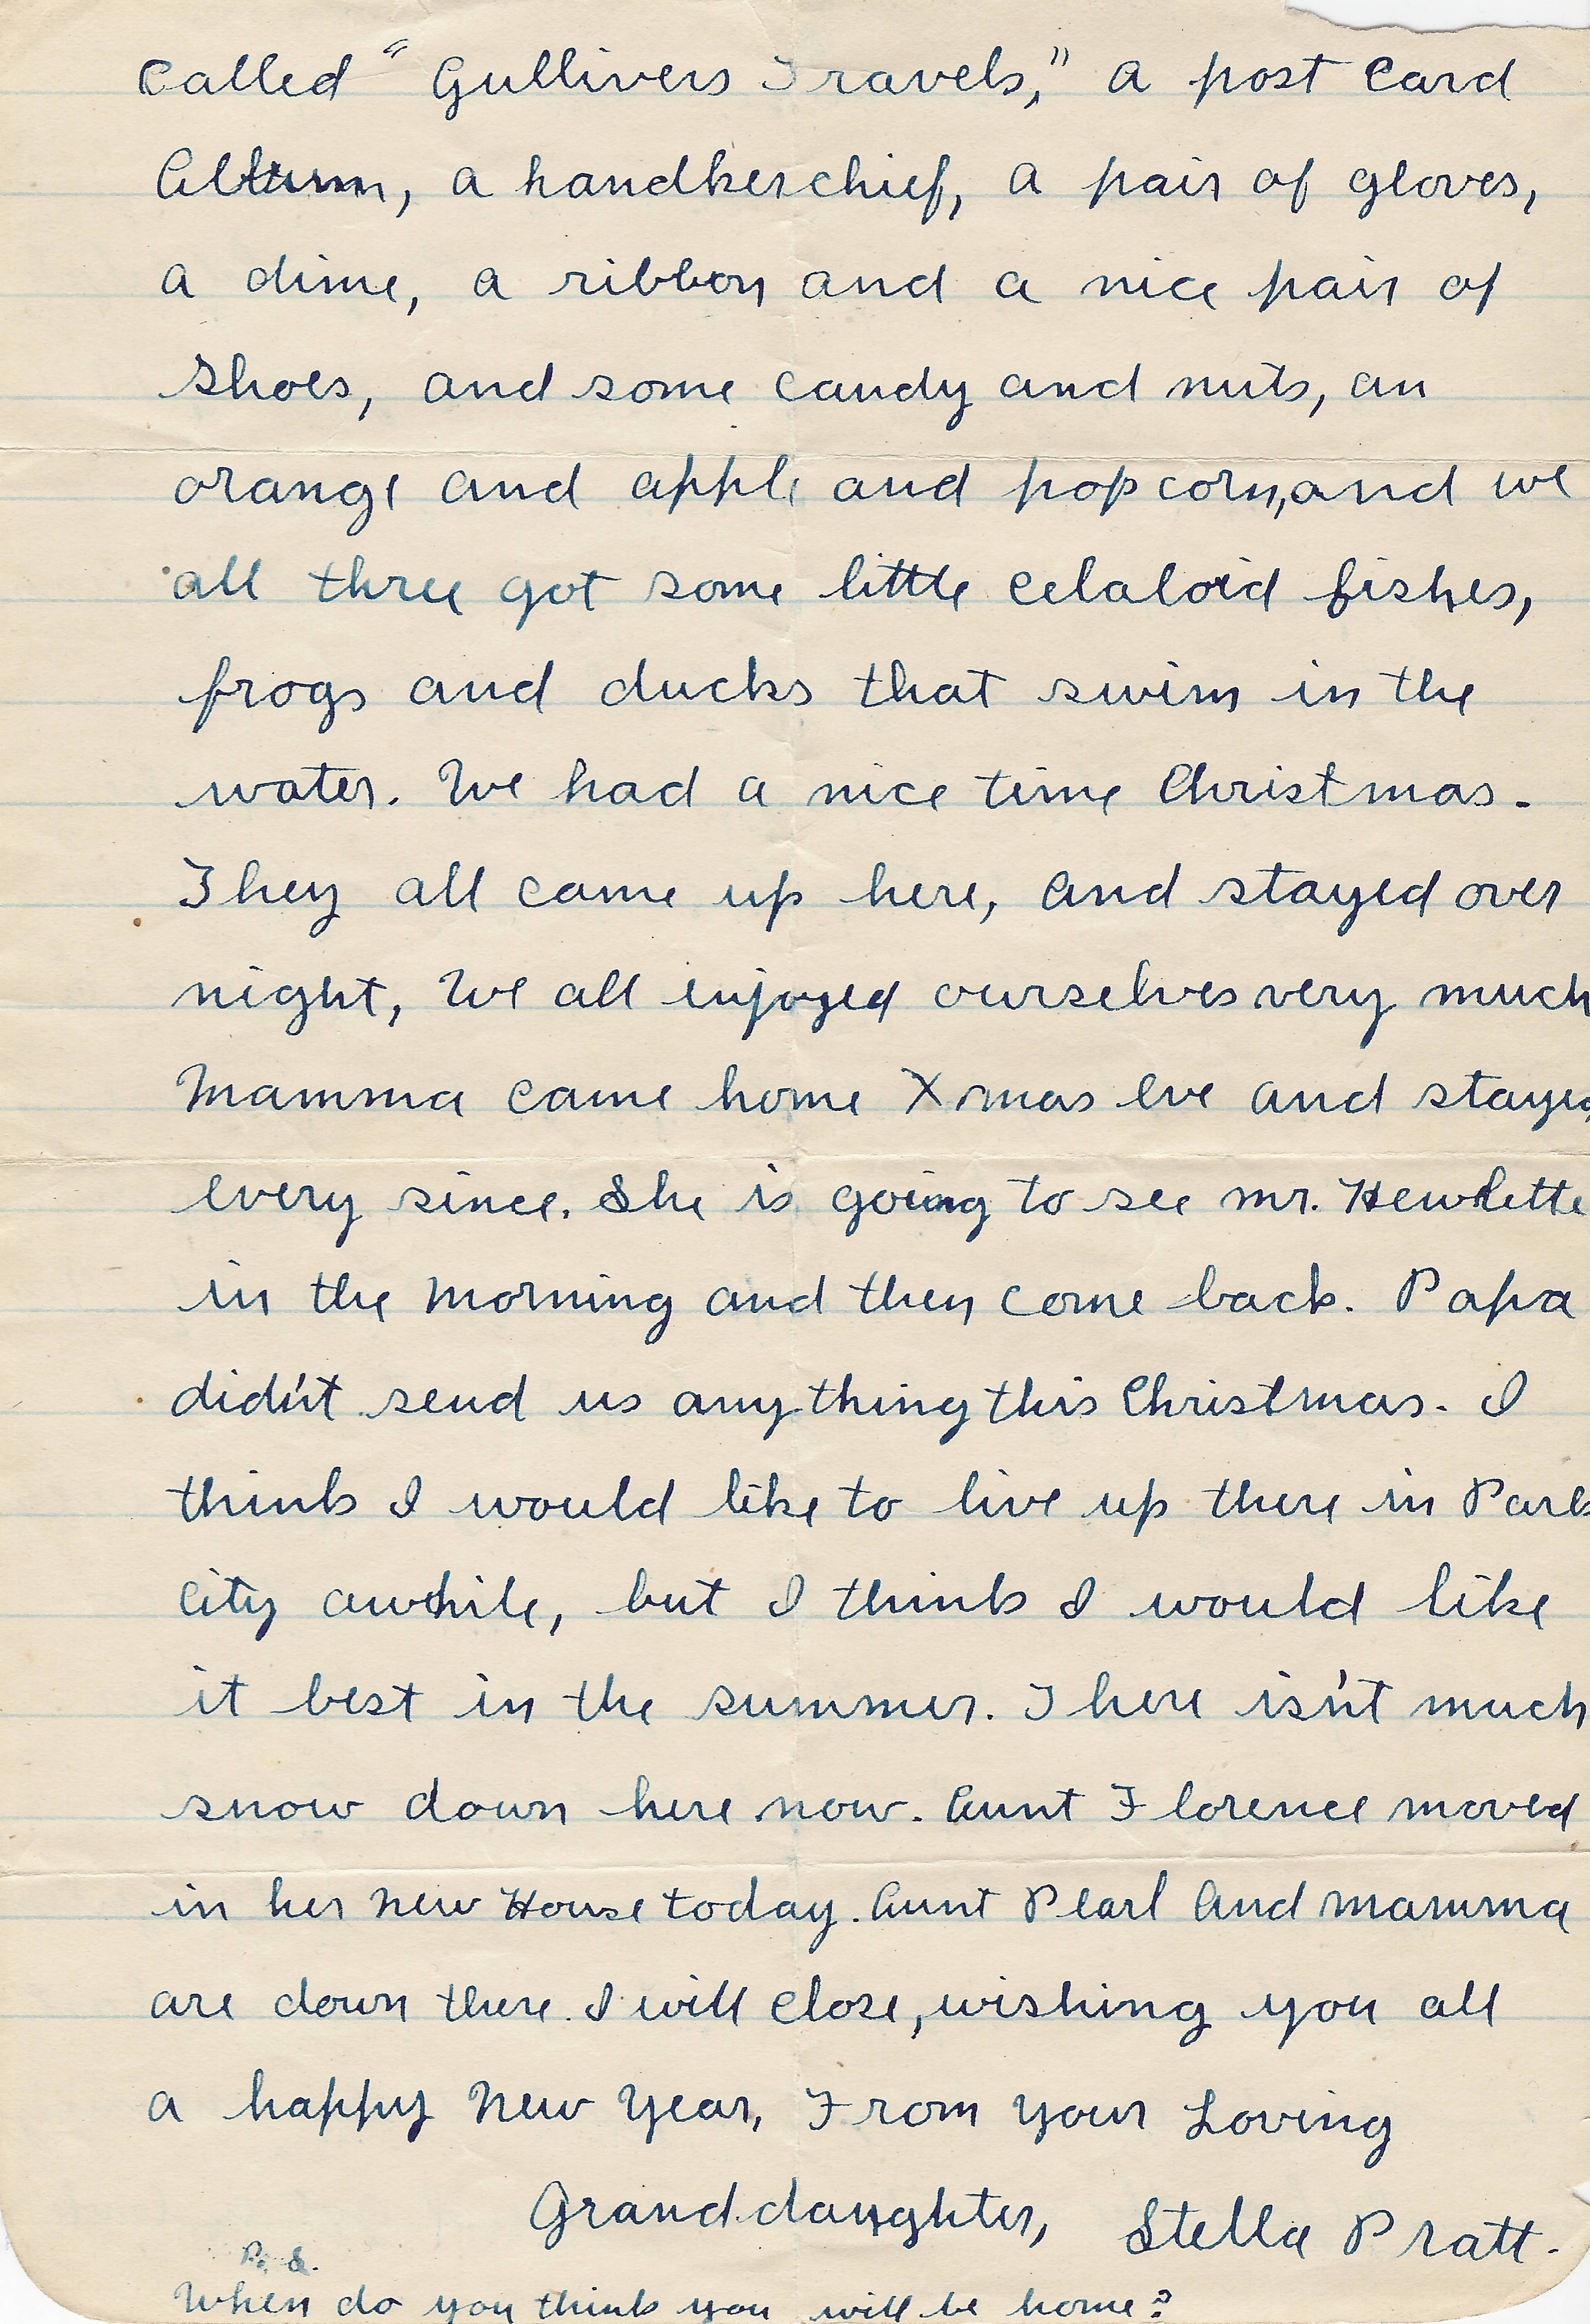 called "Gullivers Travels," a post card
Album, a handkerchief, a pair of gloves,
a dime, a ribbon and a nice pair of
shoes, and some candy and nuts, an
orange and apple and pop corn, and we
all three got some little celaloid fishes,
frogs and ducks that swim in the
water. We had a nice time Christmas.
They all came up here, and stayed over
night, We all enjoyed ourselves very much
Mamma came home Xmas Eve and stayed
every since. She is going to see Mr. Hewlette
in the morning and then come back. Papa
did'nt send us anything this Christmas. I
think I would like to live up there in Park
City awhile, but I think I would like
it best in the summer. There is'nt much
snow down here now. Aunt Florence moved
in her New House today. Aunt Pearl And Mamma
are down there. I will close, wishing you all
a happy New Year, From your Loving
Granddaughter, Stella Pratt.
P. S.
When do you think you will be home?